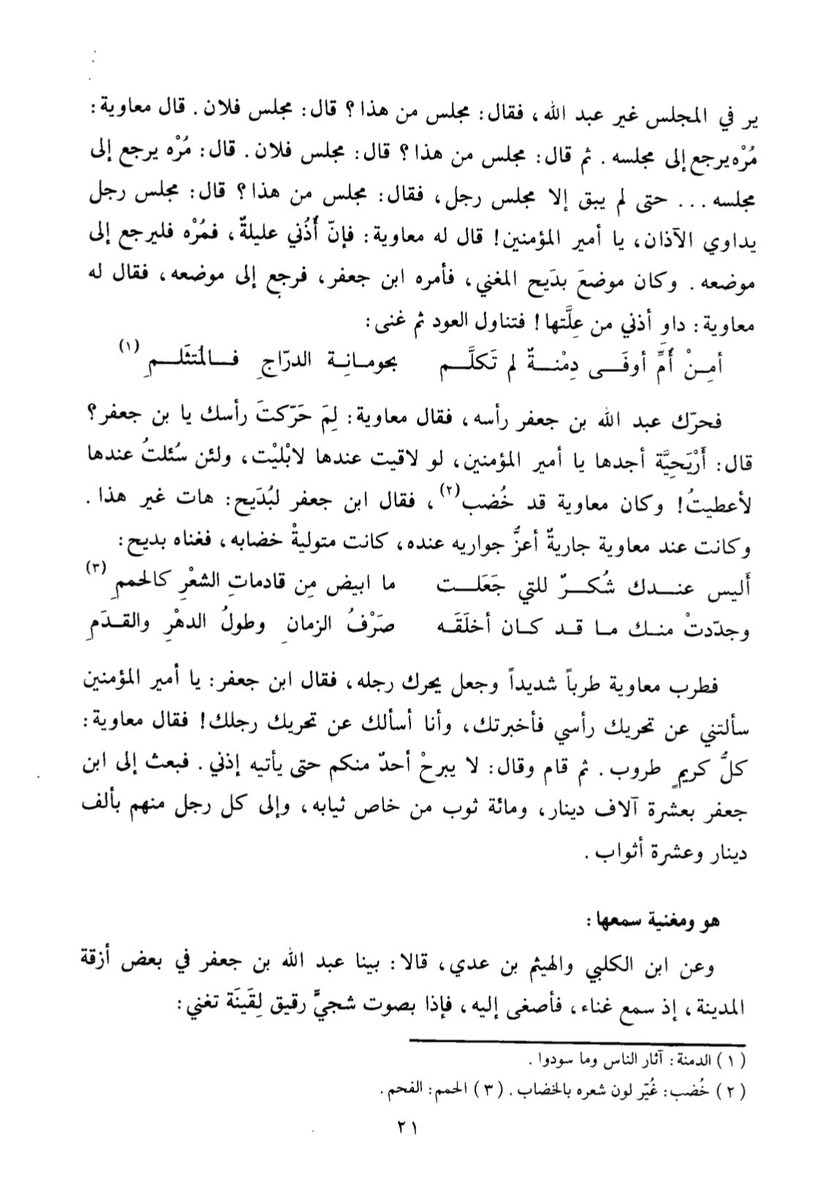 ير في المجلس غير عبد الله، فقال: مجلس من هذا؟ قال: مجلس فلان. قال معاوية:
مُرْه يرجع إلى مجلسه. ثم قال: مجلس من هذا؟ قال: مجلس فلان. قال: مُرْه يرجع إلى
مجلسه... حتى لم يبق إلا مجلس رجل، فقال: مجلس من هذا؟ قال: مجلس رجل
يداوي الآذان، يا أمير المؤمنين! قال له معاوية: فإنّ أُذُني عليلةٌ، فمُرْه فليرجع إلى
موضعه. وكان موضعَ بدَيح المغني، فأمره ابن جعفر، فرجع إلى موضعه، فقال له
معاوية: داوِ أذني من عِلَّتها! فتناول العود ثم غنى:
أمِـنْ أُمِّ أوفَـى دِمْنـةٌ لم تَكلَّـم بحومـانِـة الدرّاجِ فـالمُتثَلـمِ (١)
فحرّك عبد الله بن جعفر رأسه، فقال معاوية: لِمَ حَرّكتَ رأسك يا بن جعفر؟
قال: أَرْيَحيَّة أجدها يا أمير المؤمنين، لو لاقيت عندها لابْليْت، ولئن سُئلتُ عندها
لأعطيتُ! وكان معاوية قد خُضب(٢)، فقال ابن جعفر لبُدَيح: هات غير هذا.
وكانت عند معاوية جاريةٌ أعزُّ جواريه عنده، كانت متوليةْ خضابه، فغناه بديح:
أَليس عنـدك شُكـرٌ للتي جَعَلـت ما ابيض مِن قادماتِ الشعْرِ كالحممِ (٣)
وجدّدتْ منـك مـا قـد كـان أخلَقَـه صَرْفُ الزمانِ وطولُ الدهْرِ والقـدَمِ
فطرب معاوية طرباً شديداً وجعل يحرك رجله، فقال ابن جعفر: يا أمير المؤمنين
سألتني عن تحريك رأسي فأخبرتك، وأنا أسألك عن تحريك رجلك! فقال معاوية:
كلُّ كريمٍ طروب. ثم قام وقال: لا يبرحْ أحدٌ منكم حتى يأتيه إذني. فبعث إلى ابن
جعفر بعشرة آلاف دينار، ومائة ثوب من خاص ثيابه، وإلى كل رجل منهم بألف
دينار وعشرة أثواب.
هو ومغنية سمعها:
وعن ابن الكلبي والهيثم بن عدي، قالا: بينا عبد الله بن جعفر في بعض أزقة
المدينة، إذ سمع غناء، فأصغى إليه، فإذا بصوت شجيٍّ رقيق لِقَينَة تغني:
(١) الدمنة: آثار الناس وما سودوا.
(٢) خُضب: غُيّر لون شعره بالخضاب. (٣) الحمم: الفحم.
٢١